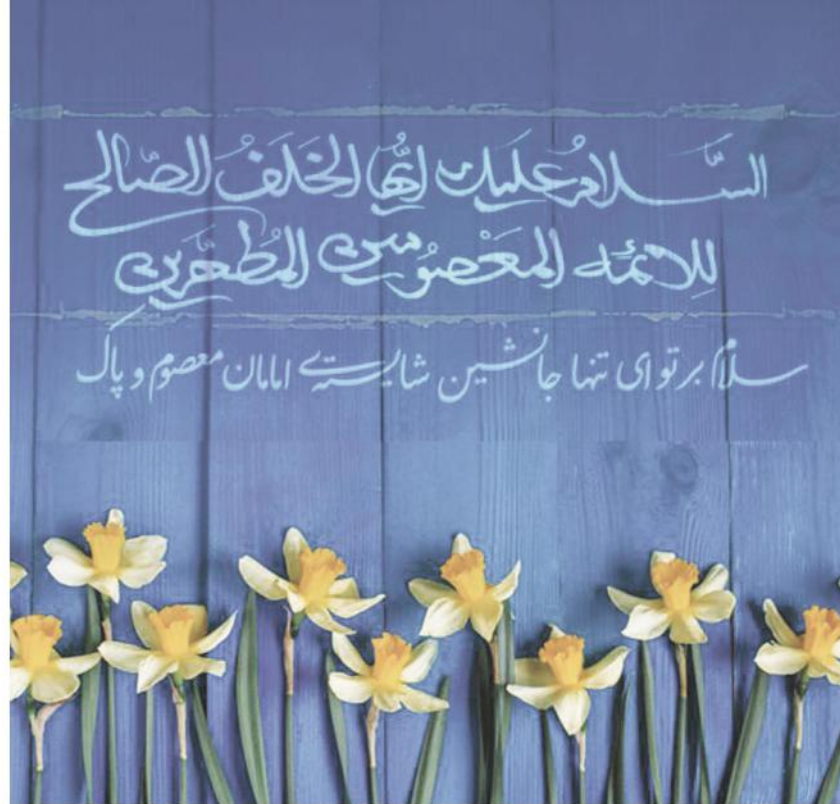 السَّلامُ عَلیك ایُّها الخَلَفُ الصّالح
لِلائمَّه المَعْصُومین المُطَهَّرین
سلام بر تو ای تنها جانشین شایسته‌ے امامان معصوم و پاک